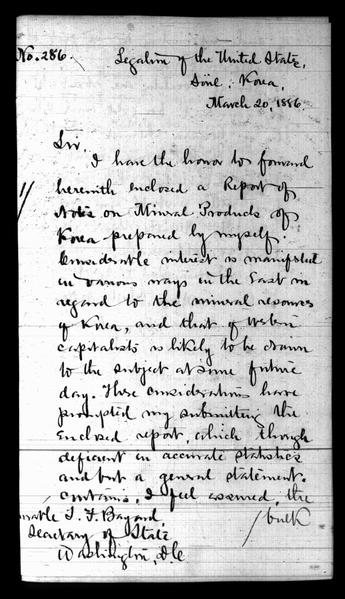 No. 286.
Legation of the United States,
Söul, Korea,
March 20, 1886.
Sir,
I have the honor to forward
herewith enclosed a Report of
Notes on Mineral Products of
Korea prepared by myself.
Considerable interest is manifested
in various ways in the East in
regard to the mineral resources
of Korea, and that of Western
capitalists is likely to be drawn
to the subject at some future
day. These considerations have
prompted my submitting the
enclosed report, which though
deficient in accurate statistics
and but a general statement,
contains, I feel assured, the
bulk
orable T. F. Bayard,
Secretary of State
Washington, D.C.